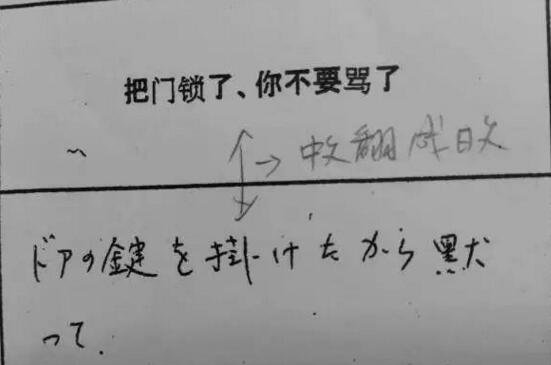 把门锁了、你不要骂了
～
↕→中文翻成日文
ドアの鍵を掛けたから黙
って.